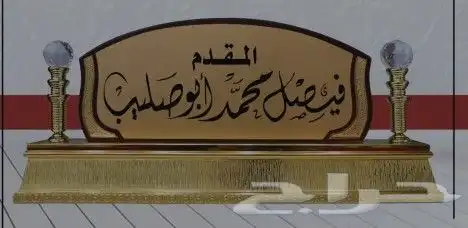 المقدم
فيصل محمد أبو صليب
حراج